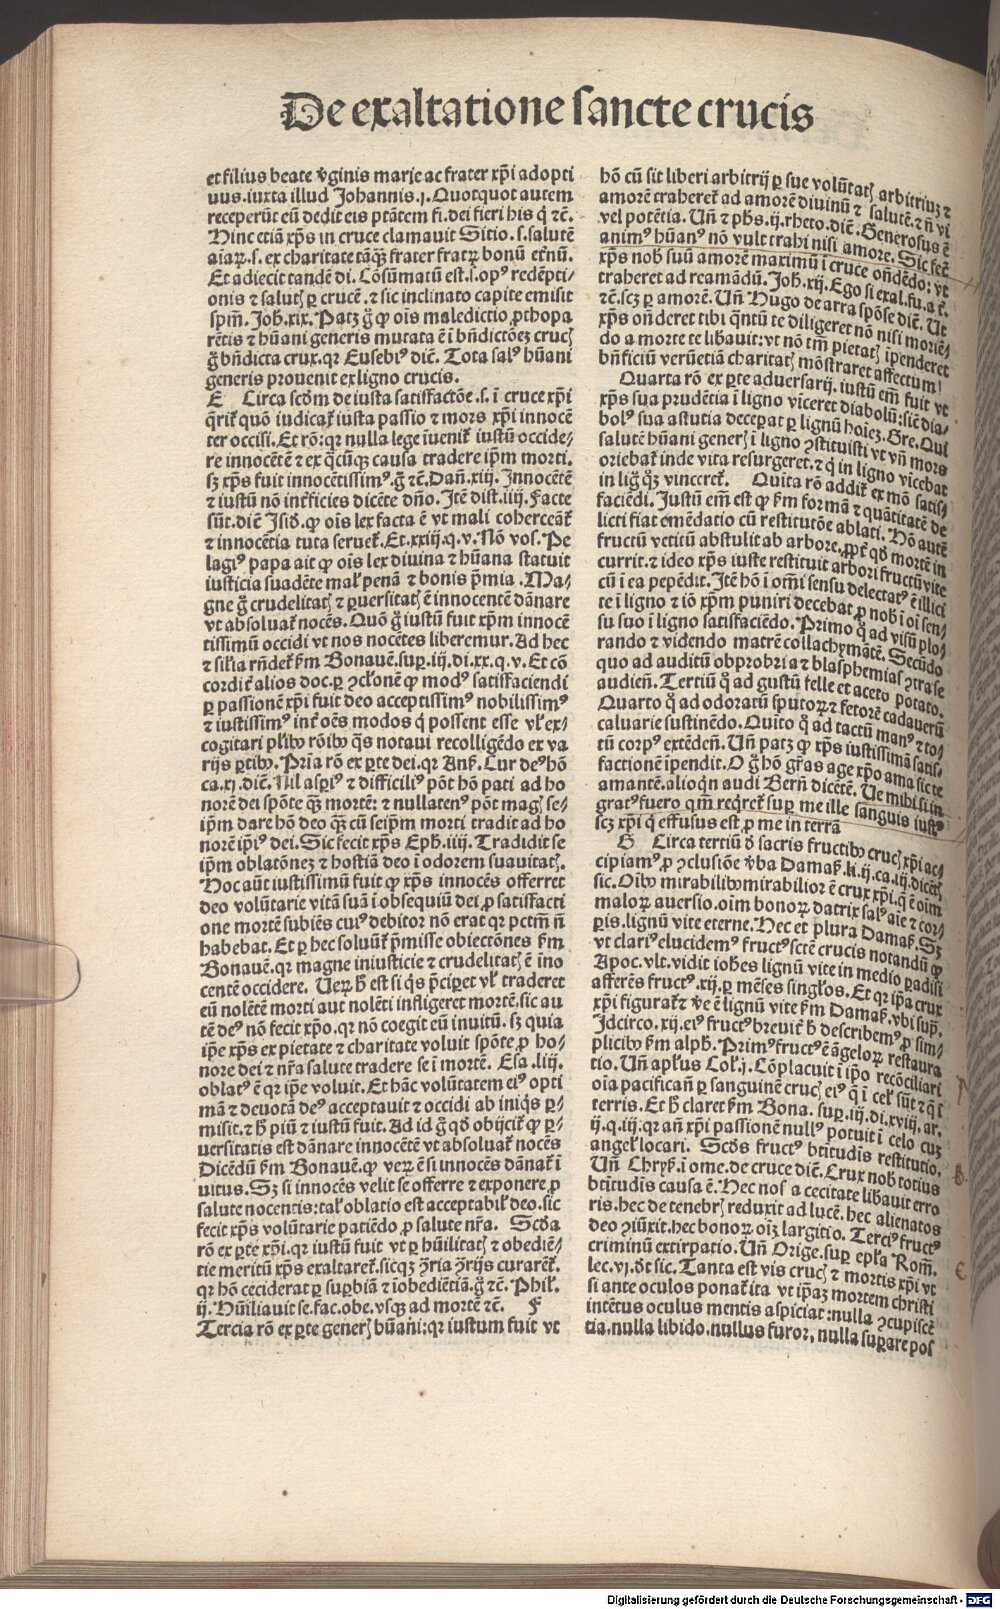 De exaltatione sancte crucis
et filius beate v̾ginis marie ac frater xp̄i adopti
uus.iuxta illud Johannis.j.Quotquot autem
receperūt eū dedit eis ptātem fi.dei fieri his q̇ ⁊c̄.
Hinc etiā xp̄s in cruce clamauit Sitio.s.salutē
aīaꝝ.s. ex charitate tāqꝫ frater fratꝝ bonū et̄nū.
Et adiecit tandē di. Cōsūmatū est.s.opꝰ redēpti-
onis ⁊ salutꝭ ꝑ crucē.⁊ sic inclinato capite emisit
spm̄. Joh.xix. Patꝫ g̊ ꝙ oīs maledictio ꝓthopa
rētis ⁊ hūani generis mutata ē ī bn̄dictōeꝫ crucꝭ
g̊ bn̄dicta crux.qꝛ Eusebiꝰ dic̄. Tota salꝰ hūani
generis prouenit ex ligno crucis.
E Circa scdm̄ de iusta satisfactōe.s. ī cruce xp̄i
q̄rit᷑ quō iudicat᷑ iusta passio ⁊ mors xp̄i innocē
ter occisi. Et rō:qꝛ nulla lege īuenit᷑ iustū occide⸗
re innocētē ⁊ ex q̄cūqꝫ causa tradere ip̄m morti.
sꝫ xp̄s fuit innocētissimꝰ.g̊ ⁊c̄. Dan̄.xiij. Innocētē
⁊ iustū nō int̄ficies dicēte dn̄o. Itē dist.iiij. Facte
sūt.dic̄ Isid̄. ꝙ oīs lex facta ē vt mali coherceāt᷑
⁊ innocētia tuta seruet᷑. Et.xxiij.q.v. Nō vos. Pe
lagiꝰ papa ait ꝙ oīs lex diuina ⁊ hūana statuit
iusticia suadēte mal̓ penā ⁊ bonis p̄mia. Ma⸗
gne g̊ crudelitatꝭ ⁊ ꝑuersitatꝭ ē innocentē dānare
vt absoluat᷑ nocēs. Quō g̊ iustū fuit xp̄m innocē
tissimū occidi vt nos nocētes liberemur. Ad hec
⁊ sil̓ia rn̄det᷑ ẜm Bonauē.suꝑ.iij.di.xx.q.v. Et cō
cordit̄ alios doc.ꝑ ꝯcl̓onē ꝙ modꝰ satisfaciendi
ꝑ passionē xp̄i fuit deo acceptissimꝰ nobilissimꝰ
⁊ iustissimꝰ int̄ oēs modos q̇ possent esse vl̓ ex⸗
cogitari pl̓ibꝰ rōibꝰ q̄s notaui recolligēdo ex va
rijs ꝑtibꝰ. Prīa rō ex ꝑte dei.qꝛ Anẜ. Cur deꝰ hō
ca.xj.dic̄. Nil asꝑiꝰ ⁊ difficiliꝰ pōt hō pati ad ho
norē dei spōte qꝫ mortē: ⁊ nullatenꝰ pōt magꝭ se⸗
ip̄m dare hō deo qꝫ cū seip̄m morti tradit ad ho
norē ip̄iꝰ dei. Sic fecit xp̄s Eph̄.iiij. Tradidit se
ip̄m oblatōneꝫ ⁊ hostiā deo ī odorem suauitatꝭ.
Hoc aūt iustissimū fuit ꝙ xp̄s innocēs offerret
deo volūtarie vitā suā ī obsequiū dei ꝓ satisfacti
one mortē subiēs cuiꝰ debitor nō erat qꝛ pctm̄ n̄
habebat. Et ꝑ hec soluūt᷑ p̄misse obiectōnes ẜm
Bonauē.qꝛ magne iniusticie ⁊ crudelitatꝭ ē ino
centē occidere. Ueꝝ ħ est si q̇s p̄ciꝑet vl̓ traderet
eū nolētē morti aut nolēti infligeret mortē.sic au
tē deꝰ nō fecit xp̄o.qꝛ nō coegit eū inuitū.sꝫ quia
ip̄e xp̄s ex pietate ⁊ charitate voluit spōte ꝓ ho⸗
nore dei ⁊ nr̄a salute tradere se ī mortē. Esa.liij.
oblatꝰ ē qꝛ ip̄e voluit. Et hāc volūtatem eiꝰ opti
mā ⁊ deuotā deꝰ acceptauit ⁊ occidi ab iniq̇s ꝑ⸗
misit.⁊ ħ piū ⁊ iustū fuit. Ad id g̊ qd̓ obijcit᷑ ꝙ ꝑ⸗
uersitatis est dānare innocētē vt absoluat᷑ nocēs
Dicēdū ẜm Bonauē. ꝙ veꝝ ē si innocēs dānat᷑ ī
uitus. Sꝫ si innocēs velit se offerre ⁊ exponere ꝓ
salute nocentis:tal̓ oblatio est acceptabil̓ deo.sic
fecit xp̄s volūtarie patiēdo ꝓ salute nr̄a. Scd̓a
rō ex ꝑte xp̄i.qꝛ iustū fuit vt ꝑ hūilitatꝭ ⁊ obediē⸗
tie meritū xp̄s exaltaret᷑.sicqꝫ ꝯ̄ria ꝯ̄rijs curaret᷑.
qꝛ hō ceciderat ꝑ suꝑbiā ⁊ īobediētiā.g̊ ⁊c̄. Phil̓.
ij. Hūiliauit se.fac.obe.vsqꝫ ad mortē ⁊c̄. F
Tercia rō ex ꝑte generꝭ hūani:qꝛ iustum fuit vt
hō cū sit liberi arbitrij ꝑ sue volūtatꝭ arbitriuꝫ ⁊
amorē traheret᷑ ad amorē diuinū ⁊ salutē.⁊ n̄ vi
vel potētia. Un̄ ⁊ ph̄s.ij.rheto.dic̄. Generosus ē
animꝰ hūanꝰ nō vult trahi nisi amore. Sic fec̄
xp̄s nob̄ suū amorē maximū ī cruce on̄dēdo: vt
traheret ad reamādū. Joh.xij. Ego si exal.fu.a t̄.
⁊c̄.scꝫ ꝑ amorē. Un̄ Hugo de arra spōse dic̄. Ut
xp̄s on̄deret tibi q̄ntū te diligeret nō nisi moriē⸗
do a morte te libauit:vt nō tm̄ pietatꝭ īpenderet
bn̄ficiū verūetiā charitatꝭ mōstraret affectum!
Quarta rō ex ꝑte aduersarij. iustū em̄ fuit vt
xp̄s sua prudētia ī ligno vīceret diabolū:sic̄ dia⸗
bolꝰ sua astutia decepat ꝑ lignū hoīeꝫ. Gre. Qui
salutē hūani generꝭ ī ligno ꝯstituisti vt vn̄ mors
oriebat᷑ inde vita resurgeret.⁊ q̇ in ligno vīcebat
in lig̊ qꝫ vinceret᷑. Quīta rō addit᷑ ex mō satis⸗
faciēdi. Justū em̄ est ꝙ ẜm formā ⁊ quātitatē de
licti fiat emēdatio cū restitutōe ablati. Hō autē
fructū vetitū abstulit ab arbore.ꝓpt̄ qd̓ mortē in
currit.⁊ ideo xp̄s iuste restituit arbori fructū vite
cū ī ea pepēdit. Itē hō ī om̄i sensu delectatꝰ ē illici
te ī ligno ⁊ iō xp̄m puniri decebat ꝓ nob̄ ī oī sen⸗
su suo ī ligno satisfaciēdo. Primo q̊ ad visū plo⸗
rando ⁊ videndo matrē collachrymātē. Secūdo
quo ad auditū obprobria ⁊ blasphemias ꝯtra se
audien̄. Tertiū q̊ ad gustū felle et aceto potato.
Quarto q̊ ad odoratū sputoꝝ ⁊ fetorē cadaueꝝ
caluarie sustinēdo. Quīto q̊ ad tactū manꝰ ⁊ to⸗
tū corpꝰ extēden̄. Un̄ patꝫ ꝙ xp̄s iustissimā satis⸗
factionē īpendit. O g̊ hō gr̄as age xp̄o ama sic te
amantē.alioqn̄ audi Bern̄ dicētē. Ue mihi si in
gratꝰ fuero qm̄ req̇ret᷑ suꝑ me ille sanguis iustꝰ
scꝫ xp̄i q̇ effusus est ꝓ me in terrā
G Circa tertiū d̓ sacris fructibꝰ crucꝭ xp̄i ac⸗
cipiamꝰ ꝓ ꝯclusiōe v̾ba Damaẜ.li.ij.ca.iij.dicētꝭ
sic. Oībꝰ mirabilibꝰ mirabilior ē crux xp̄i.q̇ ē oīm
maloꝝ auersio.oīm bonoꝝ datrix salꝰ aīe ⁊ cor⸗
ꝑis.lignū vite eterne. Hec et plura Damaẜ. Sꝫ
vt clariꝰ elucidemꝰ fructꝰ sctē crucis notandū ꝙ
Apoc.vlt.vidit ioh̄es lignū vite in medio paradisi
afferēs fructꝰ.xij.ꝑ mēses singl̓os. Et qꝛ ip̄a crux
xp̄i figurat᷑ ⁊ v̾e ē lignū vite ẜm Damaẜ.vbi sup̄.
Idcirco.xij.eiꝰ fructꝰ breuit̄ ħ describemꝰ ꝓ sim⸗
plicibꝰ ẜm alph̄. Primꝰ fructꝰ ē āgeloꝝ restaura
tio. Un̄ apl̓us Col̓.j. Cōplacuit ī ip̄o recōciliari
oīa pacificān ꝑ sanguinē crucꝭ eiꝰ q̄ ī cel̓ sūt ⁊ q̄ ī
terris. Et ħ claret ẜm Bona. suꝑ.iij.di.xviij.ar.
ij.q.iij:qꝛ an̄ xp̄i passionē nullꝰ potuit ī celo cuꝫ
angel̓ locari. Scd̓s fructꝰ btītudīs restitutio.
Un̄ Chryẜ.ī ome.de cruce dic̄. Crux nob̄ totius
btītudīs causa ē. Hec nos a cecitate libauit erro
ris.hec de tenebrꝭ reduxit ad lucē.hec alienatos
deo ꝯiūxit.hec bonoꝝ oīꝫ largitio. Terciꝰ fructꝰ
criminū extirpatio. Un̄ Orige.suꝑ epl̓a Rom̄.
lec.vj.d̓t sic. Tanta est vis crucꝭ ⁊ mortis xp̄i vt
si ante oculos ponat᷑ ita vt ip̄aꝫ mortem christi
intētus oculus mentis aspiciat:nulla ꝯcupiscē
tia.nulla libido.nullus furor, nulla suꝑare pos
Digitalisierung gefördert durch die Deutsche Forschungsgemeinschaft - DFG